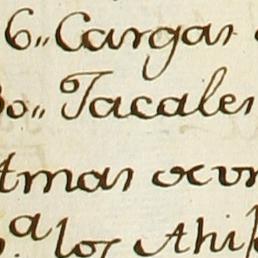 6,, Cargas
0,, Jacales
Armas ocur
a los Ahi